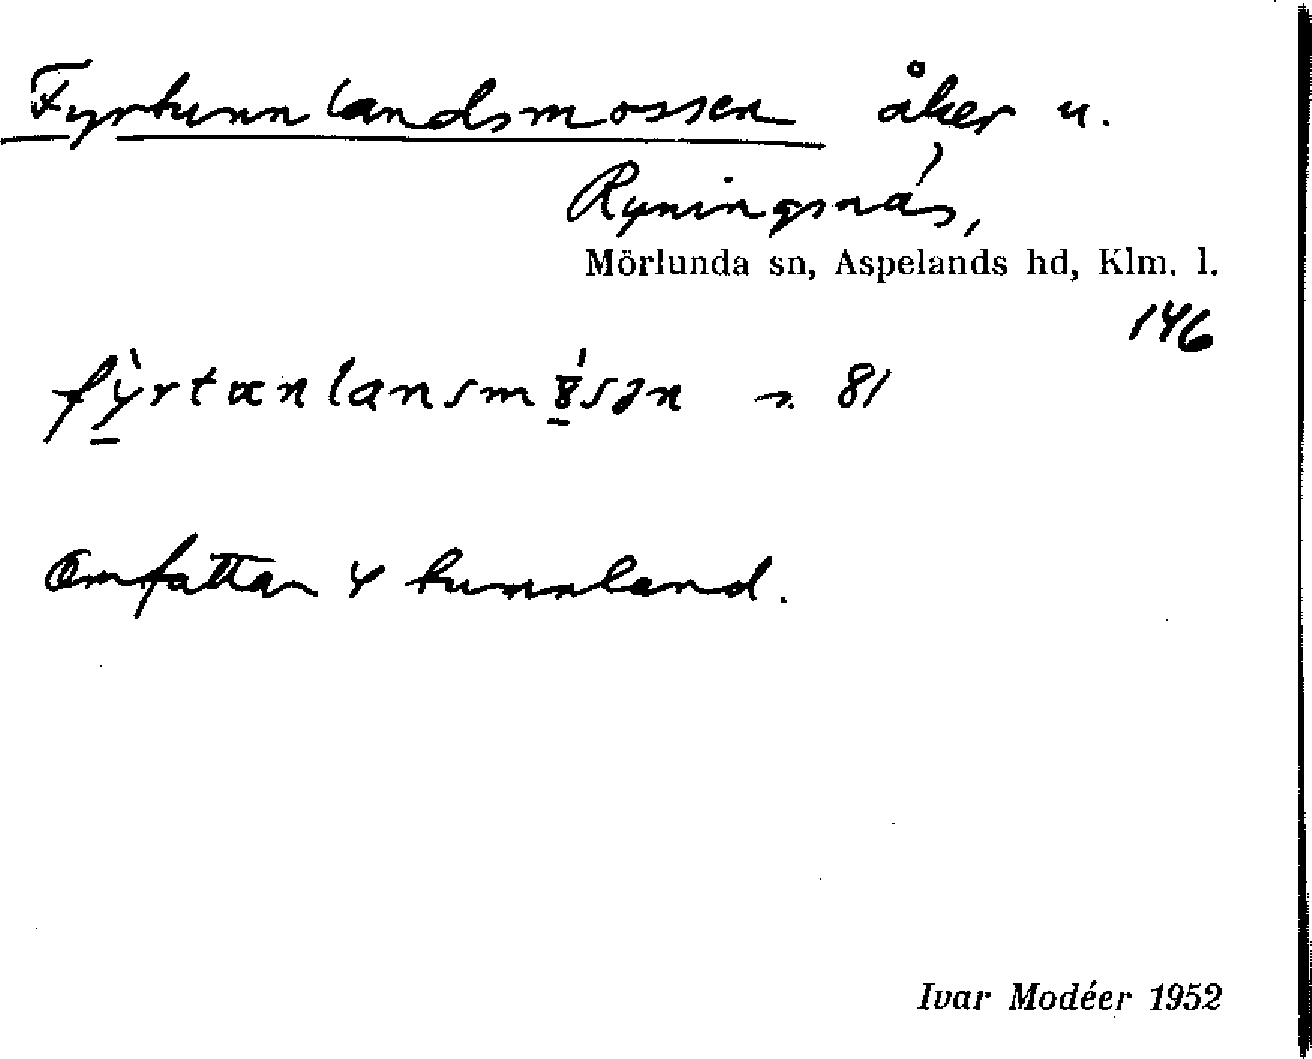 Fyrtunnlandsmossen åker u.
Ryningsnäs,
Mörlunda sn, Aspelands hd, Klm. l.
146
81
Omfattar 4 tunnland.
Ivar Modéer 1952